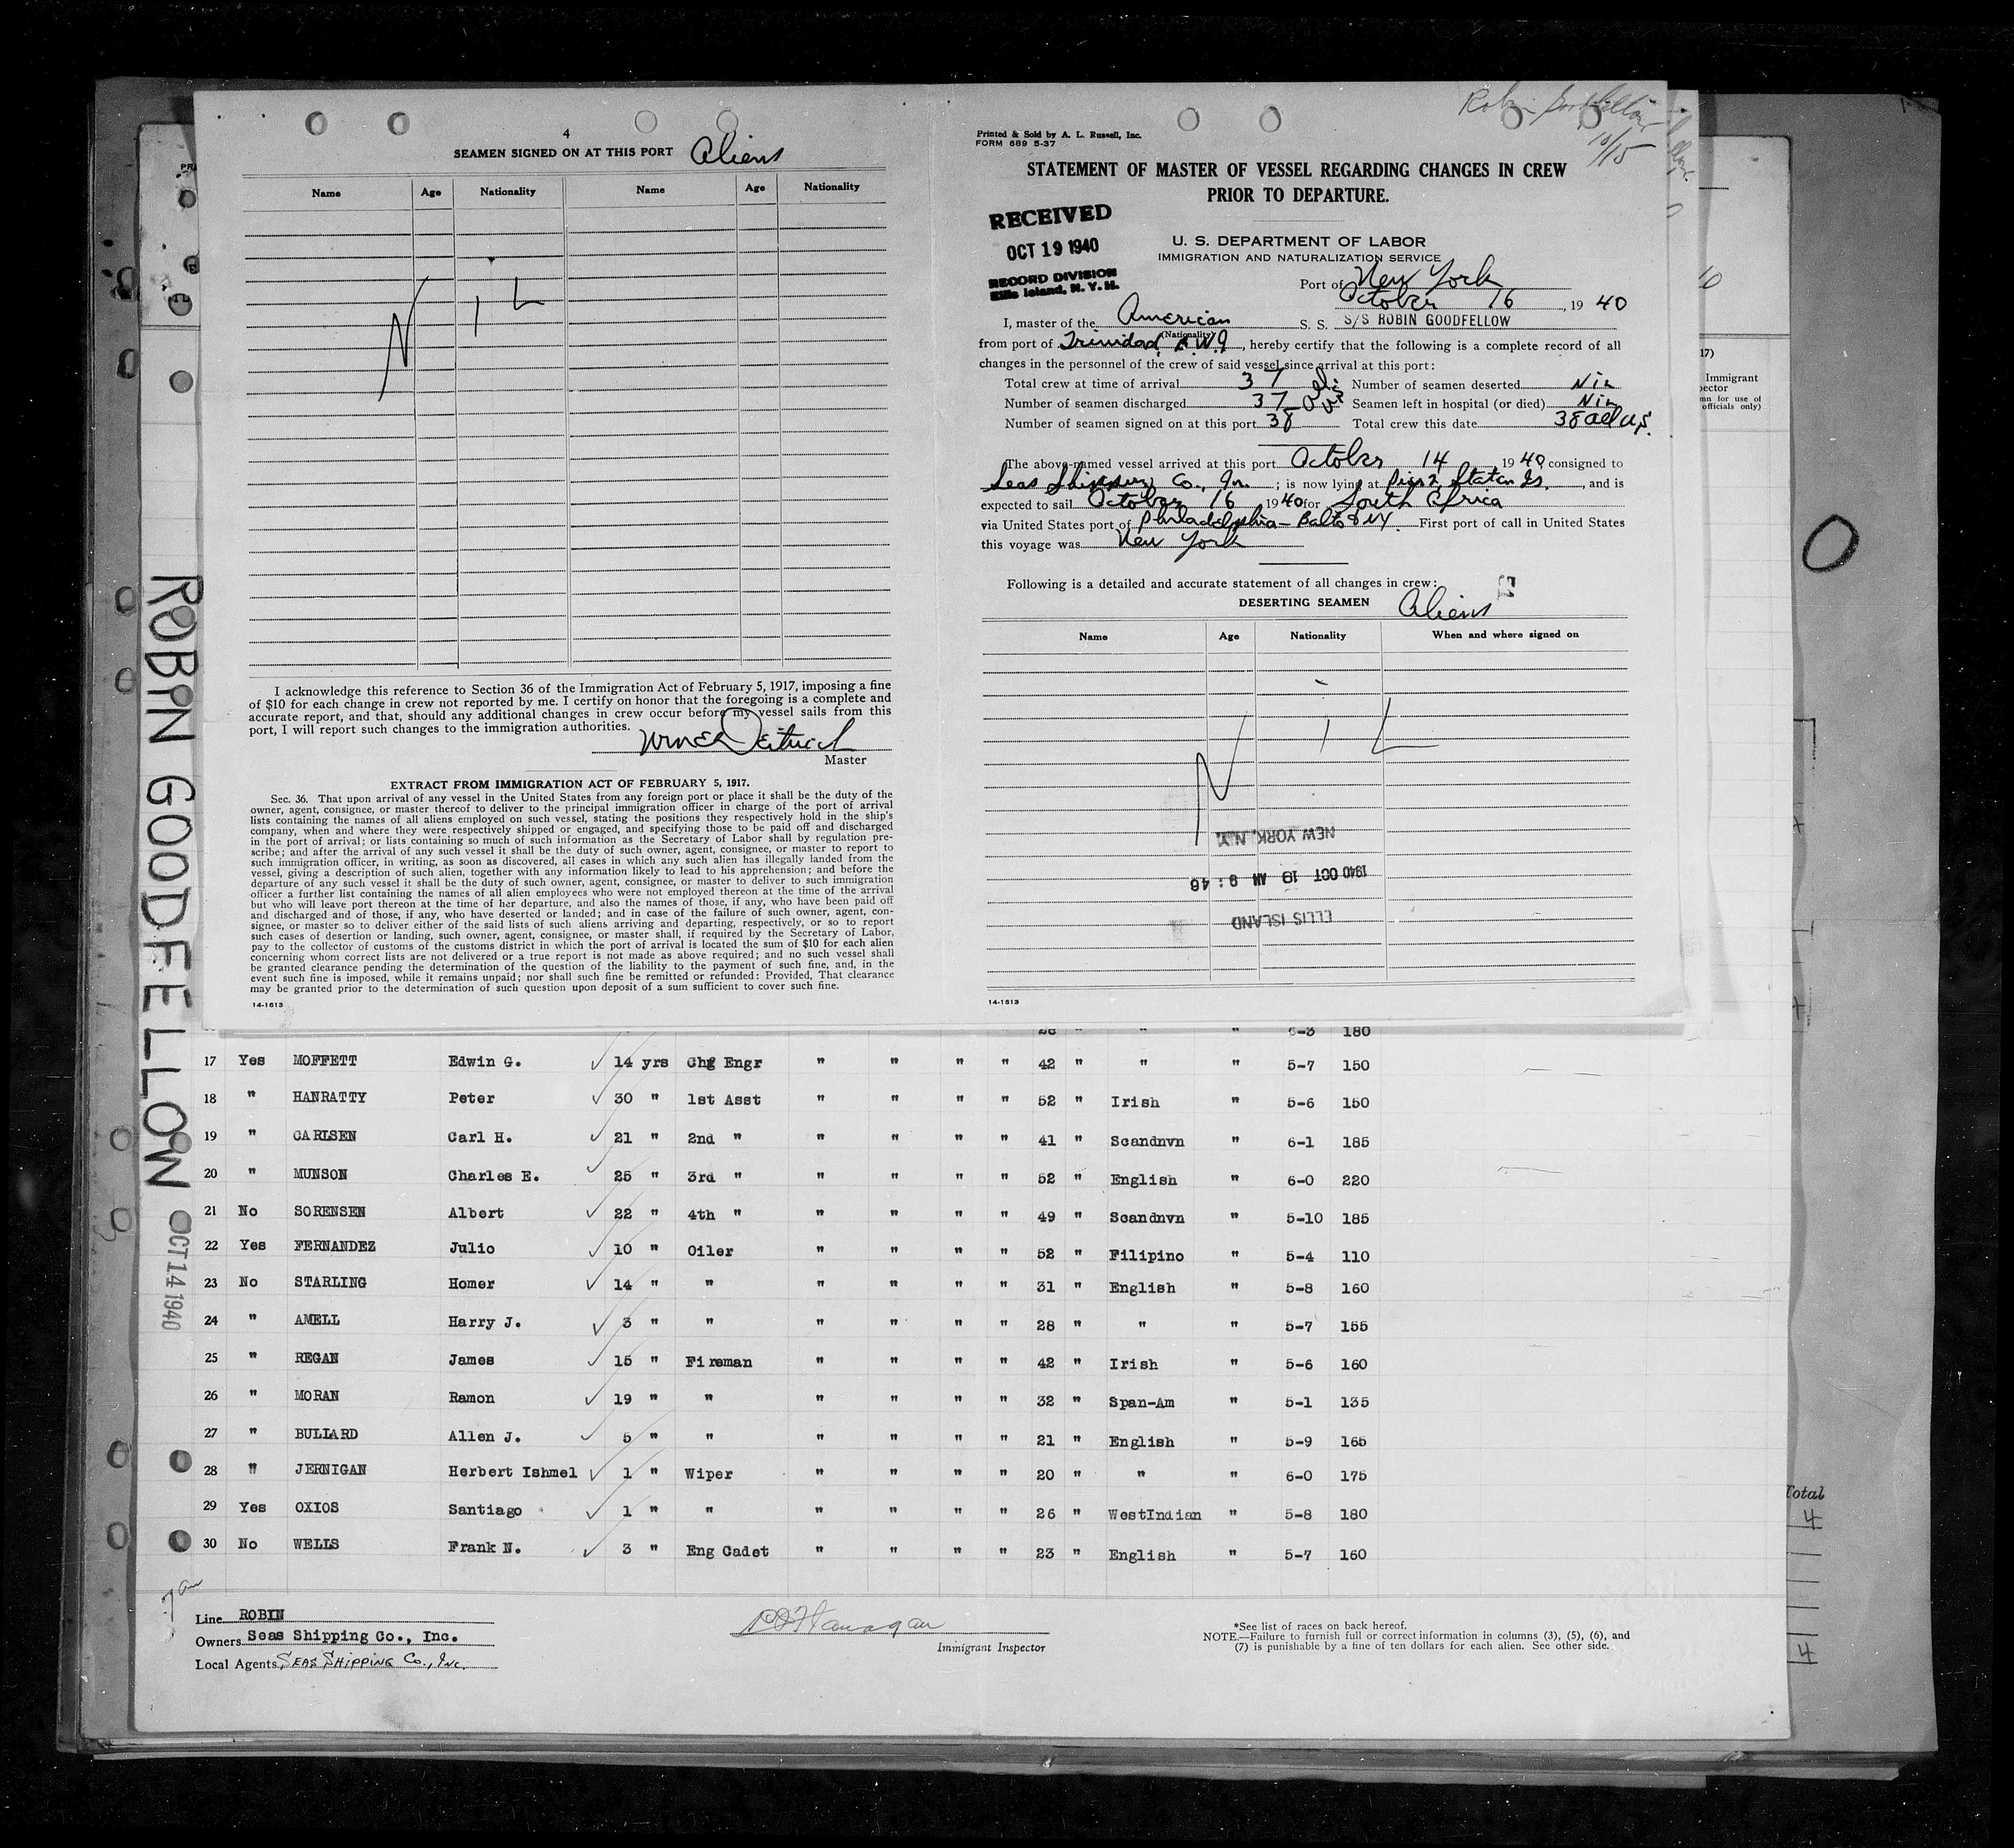 4
SEAMEN SIGNED ON AT THIS PORT Aliens
Name Age Nationality Name Age Nationality
N I L
I acknowledge this reference to Section 36 of the Immigration Act of February 5, 1917, imposing a fine
of $10 for each change in crew not reported by me. I certify on honor that the foregoing is a complete and
accurate report, and that, should any additional changes in crew occur before my vessel sails from this
port, I will report such changes to the immigration authorities.
Master
EXTRACT FROM IMMIGRATION ACT OF FEBRUARY 5, 1917.
Sec. 36. That upon arrival of any vessel in the United States from any foreign port or place it shall be the duty of the
owner, agent, consignee, or master thereof to deliver to the principal immigration officer in charge of the port of arrival
lists containing the names of all aliens employed on such vessel, stating the positions they respectively hold in the ship's
company, when and where they were respectively shipped or engaged, and specifying those to be paid off and discharged
in the port of arrival; or lists containing so much of such information as the Secretary of Labor shall by regulation pre-
scribe; and after the arrival of any such vessel it shall be the duty of such owner, agent, consignee, or master to report to
such immigration officer, in writing, as soon as discovered, all cases in which any such alien has illegally landed from the
vessel, giving a description of such alien, together with any information likely to lead to his apprehension; and before the
departure of any such vessel it shall be the duty of such owner, agent, consignee, or master to deliver to such immigration
officer a further list containing the names of all alien employees who were not employed thereon at the time of the arrival
but who will leave port thereon at the time of her departure, and also the names of those, if any, who have been paid off
and discharged and of those, if any, who have deserted or landed; and in case of the failure of such owner, agent, con-
signee, or master so to deliver either of the said lists of such aliens arriving and departing, respectively, or so to report
such cases of desertion or landing, such owner, agent, consignee, or master shall, if required by the Secretary of Labor,
pay to the collector of customs of the customs district in which the port of arrival is located the sum of $10 for each alien
concerning whom correct lists are not delivered or a true report is not made as above required; and no such vessel shall
be granted clearance pending the determination of the question of the liability to the payment of such fine, and, in the
event such fine is imposed, while it remains unpaid; nor shall such fine be remitted or refunded: Provided, That clearance
may be granted prior to the determination of such question upon deposit of a sum sufficient to cover such fine.
14-1613
Robin Goodfellow
10/15
Printed & Sold by A. L. Russell, Inc.
FORM 689 5-37
STATEMENT OF MASTER OF VESSEL REGARDING CHANGES IN CREW
PRIOR TO DEPARTURE.
RECEIVED
OCT 19 1940
RECORD DIVISION
Ellis Island, N. Y. H.
U. S. DEPARTMENT OF LABOR
IMMIGRATION AND NATURALIZATION SERVICE
Port of New York
October 16, 1940
I, master of the American S. S. S/S ROBIN GOODFELLOW
(Nationality)
from port of Trinidad, B.W.I, hereby certify that the following is a complete record of all
changes in the personnel of the crew of said vessel since arrival at this port:
Total crew at time of arrival 37 Number of seamen deserted Nil
Number of seamen discharged 37 Seamen left in hospital (or died) Nil
Number of seamen signed on at this port 38 Total crew this date 38 all U.S.
The above-named vessel arrived at this port October 14 1940 consigned to
Seas Shipping Co., Inc. ; is now lying at Pier 2, Staten Is., and is
expected to sail October 16 1940 for South Africa
via United States port of Philadelphia-Balto & NY. First port of call in United States
this voyage was New York
Following is a detailed and accurate statement of all changes in crew:
DESERTING SEAMEN Aliens
Name Age Nationality When and where signed on
N I L
NEW YORK, N.Y.
1940 OCT 19 AM 9:46
ELLIS ISLAND
14-1613
17)
Immigrant
officials only)
ROBIN GOODFELLOW OCT 14 1940
6-3 180
17 Yes MOFFETT Edwin G. ✓ 14 yrs Chg Engr " " " " 42 " " " 5-7 150
18 " HANRATTY Peter ✓ 30 " 1st Asst " " " " 52 " Irish " 5-6 150
19 " CARLSEN Carl H. ✓ 21 " 2nd " " " " " 41 " Scandnvn " 6-1 185
20 " MUNSON Charles E. ✓ 25 " 3rd " " " " " 52 " English " 6-0 220
21 No SORENSEN Albert ✓ 22 " 4th " " " " " 49 " Scandnvn " 5-10 185
22 Yes FERNANDEZ Julio ✓ 10 " Oiler " " " " 52 " Filipino " 5-4 110
23 No STARLING Homer ✓ 14 " " " " " " 31 " English " 5-8 160
24 " AMELL Harry J. ✓ 3 " " " " " " 28 " " " 5-7 155
25 " REGAN James ✓ 15 " Fireman " " " " 42 " Irish " 5-6 160
26 " MORAN Ramon ✓ 19 " " " " " " 32 " Span-Am " 5-1 135
27 " BULLARD Allen J. ✓ 5 " " " " " " 21 " English " 5-9 165
28 " JERNIGAN Herbert Ishmel ✓ 1 " Wiper " " " " 20 " " " 6-0 175
29 Yes OXIOS Santiago ✓ 1 " " " " " " 26 " WestIndian " 5-8 180
30 No WELLS Frank N. ✓ 3 " Eng Cadet " " " " 23 " English " 5-7 160
Total
4
4
Line ROBIN
Owners Seas Shipping Co., Inc.
Local Agents SEAS SHIPPING CO., INC.
Immigrant Inspector
*See list of races on back hereof.
NOTE.—Failure to furnish full or correct information in columns (3), (5), (6), and
(7) is punishable by a fine of ten dollars for each alien. See other side.